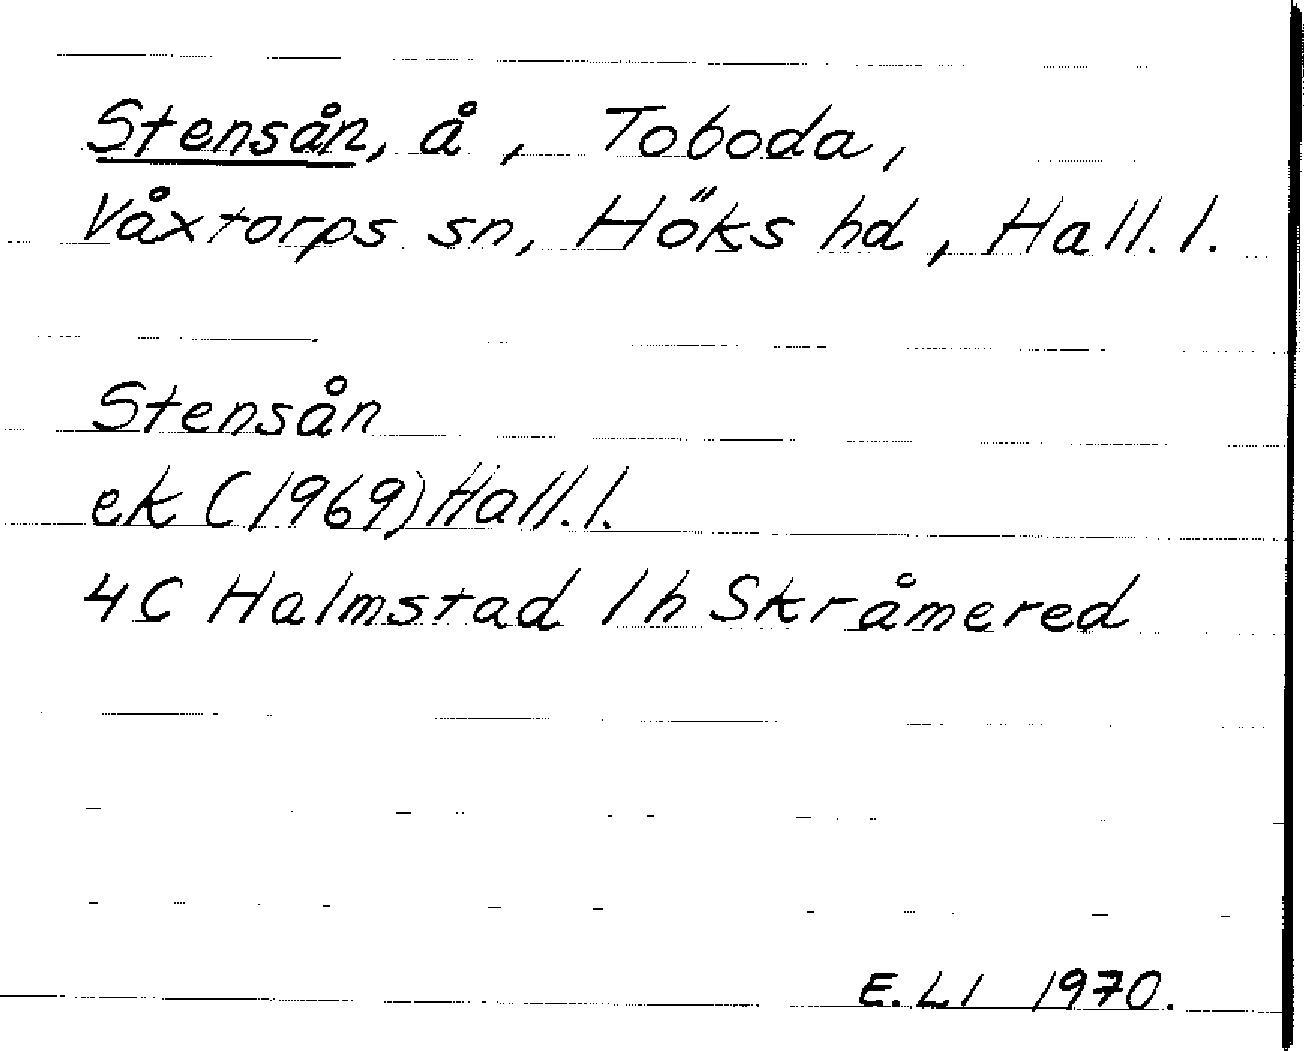 Stensån, å, Toboda,
Våxtorps sn, Höks hd, Hall. l.
Stensån
ek (1969) Hall. l.
4C Halmstad 1h Skråmered
E. Ll 1970.